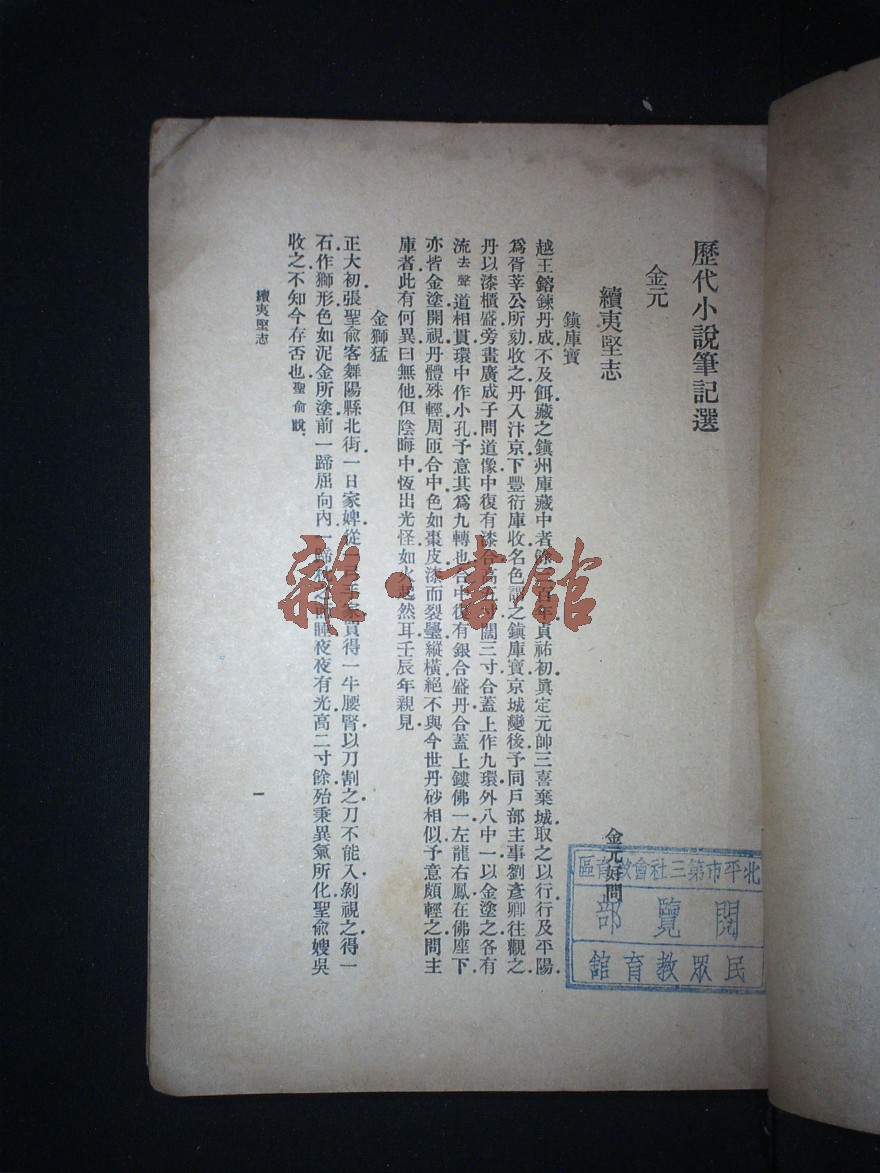 歷代小說筆記選
金元
續夷堅志
金元好問
鎮庫寶
越王鎔鍊丹成不及餌藏之鎮州庫藏中者餘百年貞祐初眞定元帥三喜棄城取之以行行及平陽
爲胥莘公所劾收之丹入汴京下豐衍庫收名色謂之鎮庫寶京城變後予同戶部主事劉彥卿往觀之
丹以漆櫃盛旁畫廣成子問道像中復有漆合高五寸闊三寸合蓋上作九環外八中一以金塗之各有
流去聲道相貫環中作小孔予意其爲九轉也合中復有銀合盛丹合蓋上鏤佛一左龍右鳳在佛座下
亦皆金塗開視丹體殊輕周匝合中色如棗皮漆而裂璺縱橫絕不與今世丹砂相似予意頗輕之問主
庫者此有何異曰無他但陰晦中恆出光怪如火起然耳壬辰年親見
金獅猛
正大初張聖俞客舞陽縣北街一日家婢從一家買得一牛腰腎以刀割之刀不能入剝視之得一
石作獅形色如泥金所塗前一蹄屈向內一蹄枕之而睡夜夜有光高二寸餘殆秉異氣所化聖俞嫂吳
收之不知今存否也聖俞說
續夷堅志
一
北平市第三社會教育區
閱覽部
民眾教育館
雜·書館